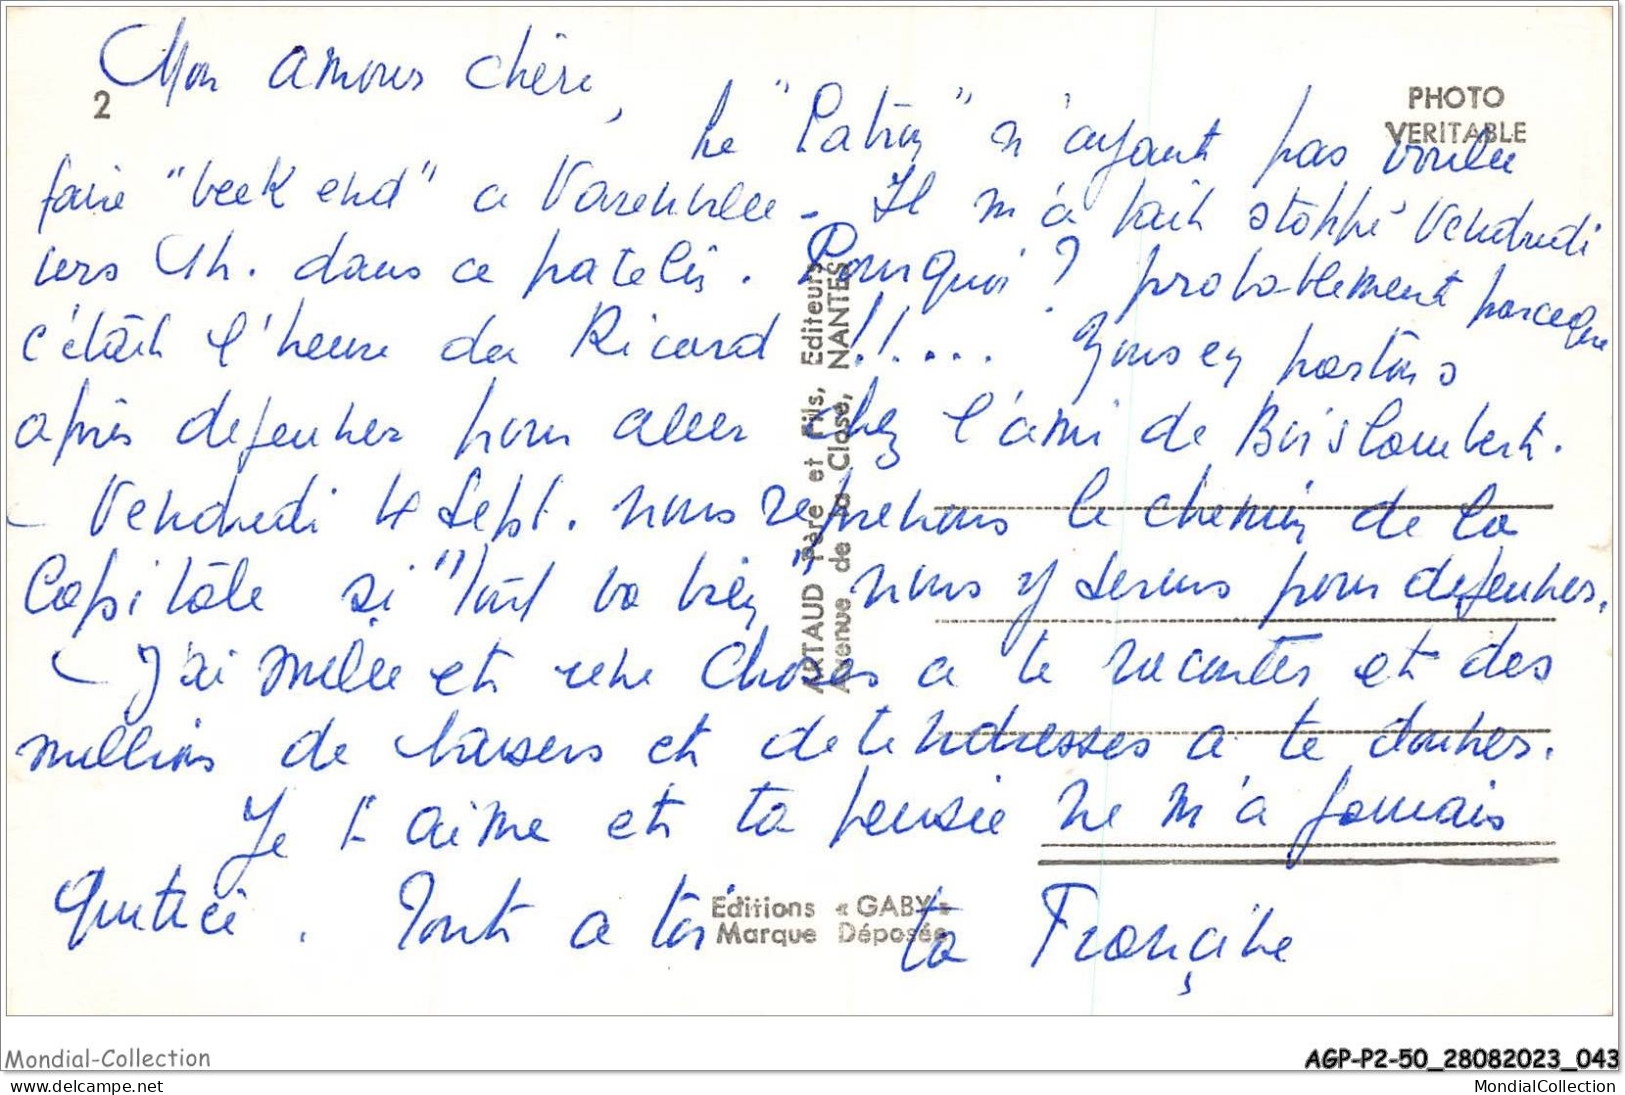 Mon amour chéri,
2
PHOTO
VERITABLE
Le "Patron" n'ayant pas voulu
faire "week end" a Il m'a fait stoppé Vendredi
vers 11h. dans ce patelin. Pourquoi ? probablement parceque
c'était l'heure du Ricard !!.... Nous en partons
après dejeuner pour aller chez l'ami de Boislambert.
Vendredi 4 Sept. nous reprenons le chemin de la
Capitâle si "tout va bien" nous y serons pour dejeuner.
J'ai mille et une choses a te raconter et des
millions de baisers et de tendresses a te donner.
Je t'aime et ta pensée ne m'a jamais
quittée. Tout a toi ta Françine
ARTAUD Père et Fils, Editeurs
Avenue de la Close, NANTES
Editions « GABY »
Marque Déposée
Mondial-Collection
AGP-P2-50_28082023_043
www.delcampe.net
MondialCollection